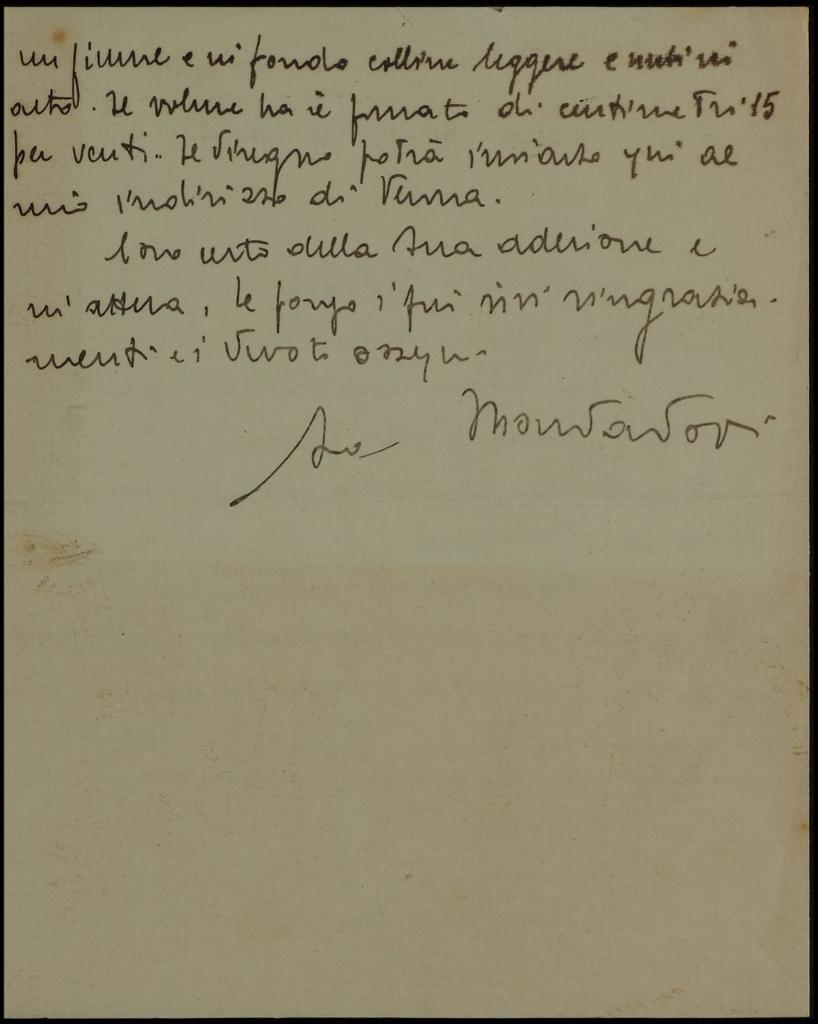 un fiume e in fondo colline leggere e nubi in
alto. Il volume ha il formato di centimetri 15
per venti. Il disegno potrà inviarlo qui al
mio indirizzo di Verona.
Sono certo della Sua adesione e
in attesa, Le porgo i più vivi ringrazia-
menti e i devoti ossequi.
Suo Mondadori